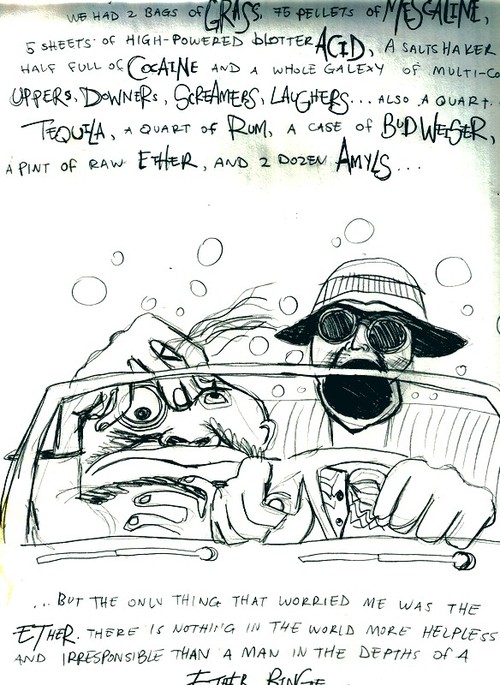 WE HAD 2 BAGS OF GRASS, 75 PELLETS OF MESCALINE,
5 SHEETS OF HIGH-POWERED BLOTTER ACID, A SALTSHAKER
HALF FULL OF COCAINE AND A WHOLE GALEXY OF MULTI-CO
UPPERS, DOWNERS, SCREAMERS, LAUGHERS... ALSO A QUART
TEQUILA, A QUART OF RUM, A CASE OF BUDWEISER,
A PINT OF RAW ETHER, AND 2 DOZEN AMYLS...
...BUT THE ONLY THING THAT WORRIED ME WAS THE
ETHER. THERE IS NOTHING IN THE WORLD MORE HELPLESS
AND IRRESPONSIBLE THAN A MAN IN THE DEPTHS OF A
ETHER BINGE...